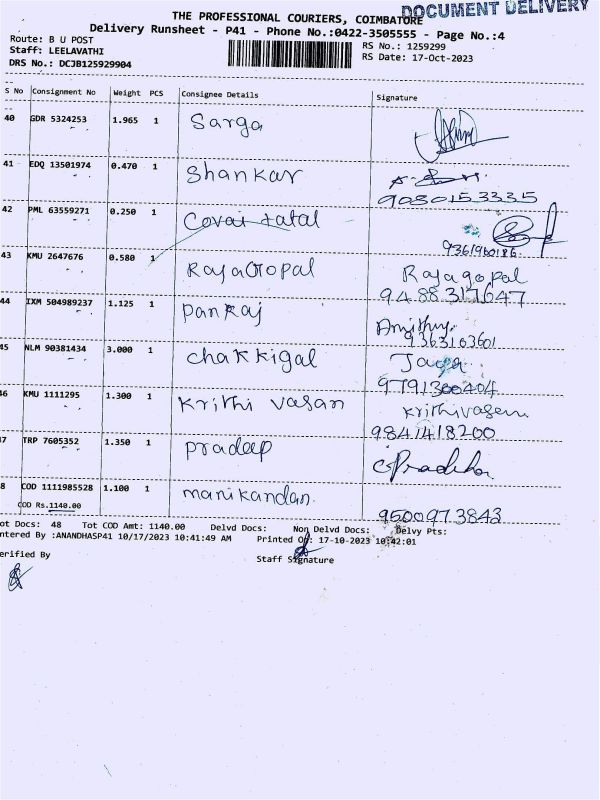 DOCUMENT DELIVERY
THE PROFESSIONAL COURIERS, COIMBATORE
Delivery Runsheet - P41 - Phone No.:0422-3505555 - Page No.:4
Route: B U POST
RS No.: 1259299
Staff: LEELAVATHI
RS Date: 17-Oct-2023
DRS No.: DCJB125929904
S No Consignment No Weight PCS Consignee Details Signature
40 GDR 5324253 1.965 1 Sarga
41 EDQ 13501974 0.470 1 Shankar
9080153335
42 PML 63559271 0.250 1 Covai tatal
9361960186
43 KMU 2647676 0.580 1 RajaGopal Rajagopal
9488317647
44 IXM 504989237 1.125 1 Pankaj
9363163601
45 NLM 90381434 3.000 1 chakkigal Jaga
9791300404
46 KMU 1111295 1.300 1 Krithi vasan Krithivasan
9841418200
47 TRP 7605352 1.350 1 pradeep
48 COD 1111985528 1.100 1 manikandan.
COD Rs.1140.00 9500973843
Tot Docs: 48 Tot COD Amt: 1140.00 Delvd Docs: Non Delvd Docs: Delvy Pts:
Entered By :ANANDHASP41 10/17/2023 10:41:49 AM Printed On: 17-10-2023 10:42:01
Verified By Staff Signature